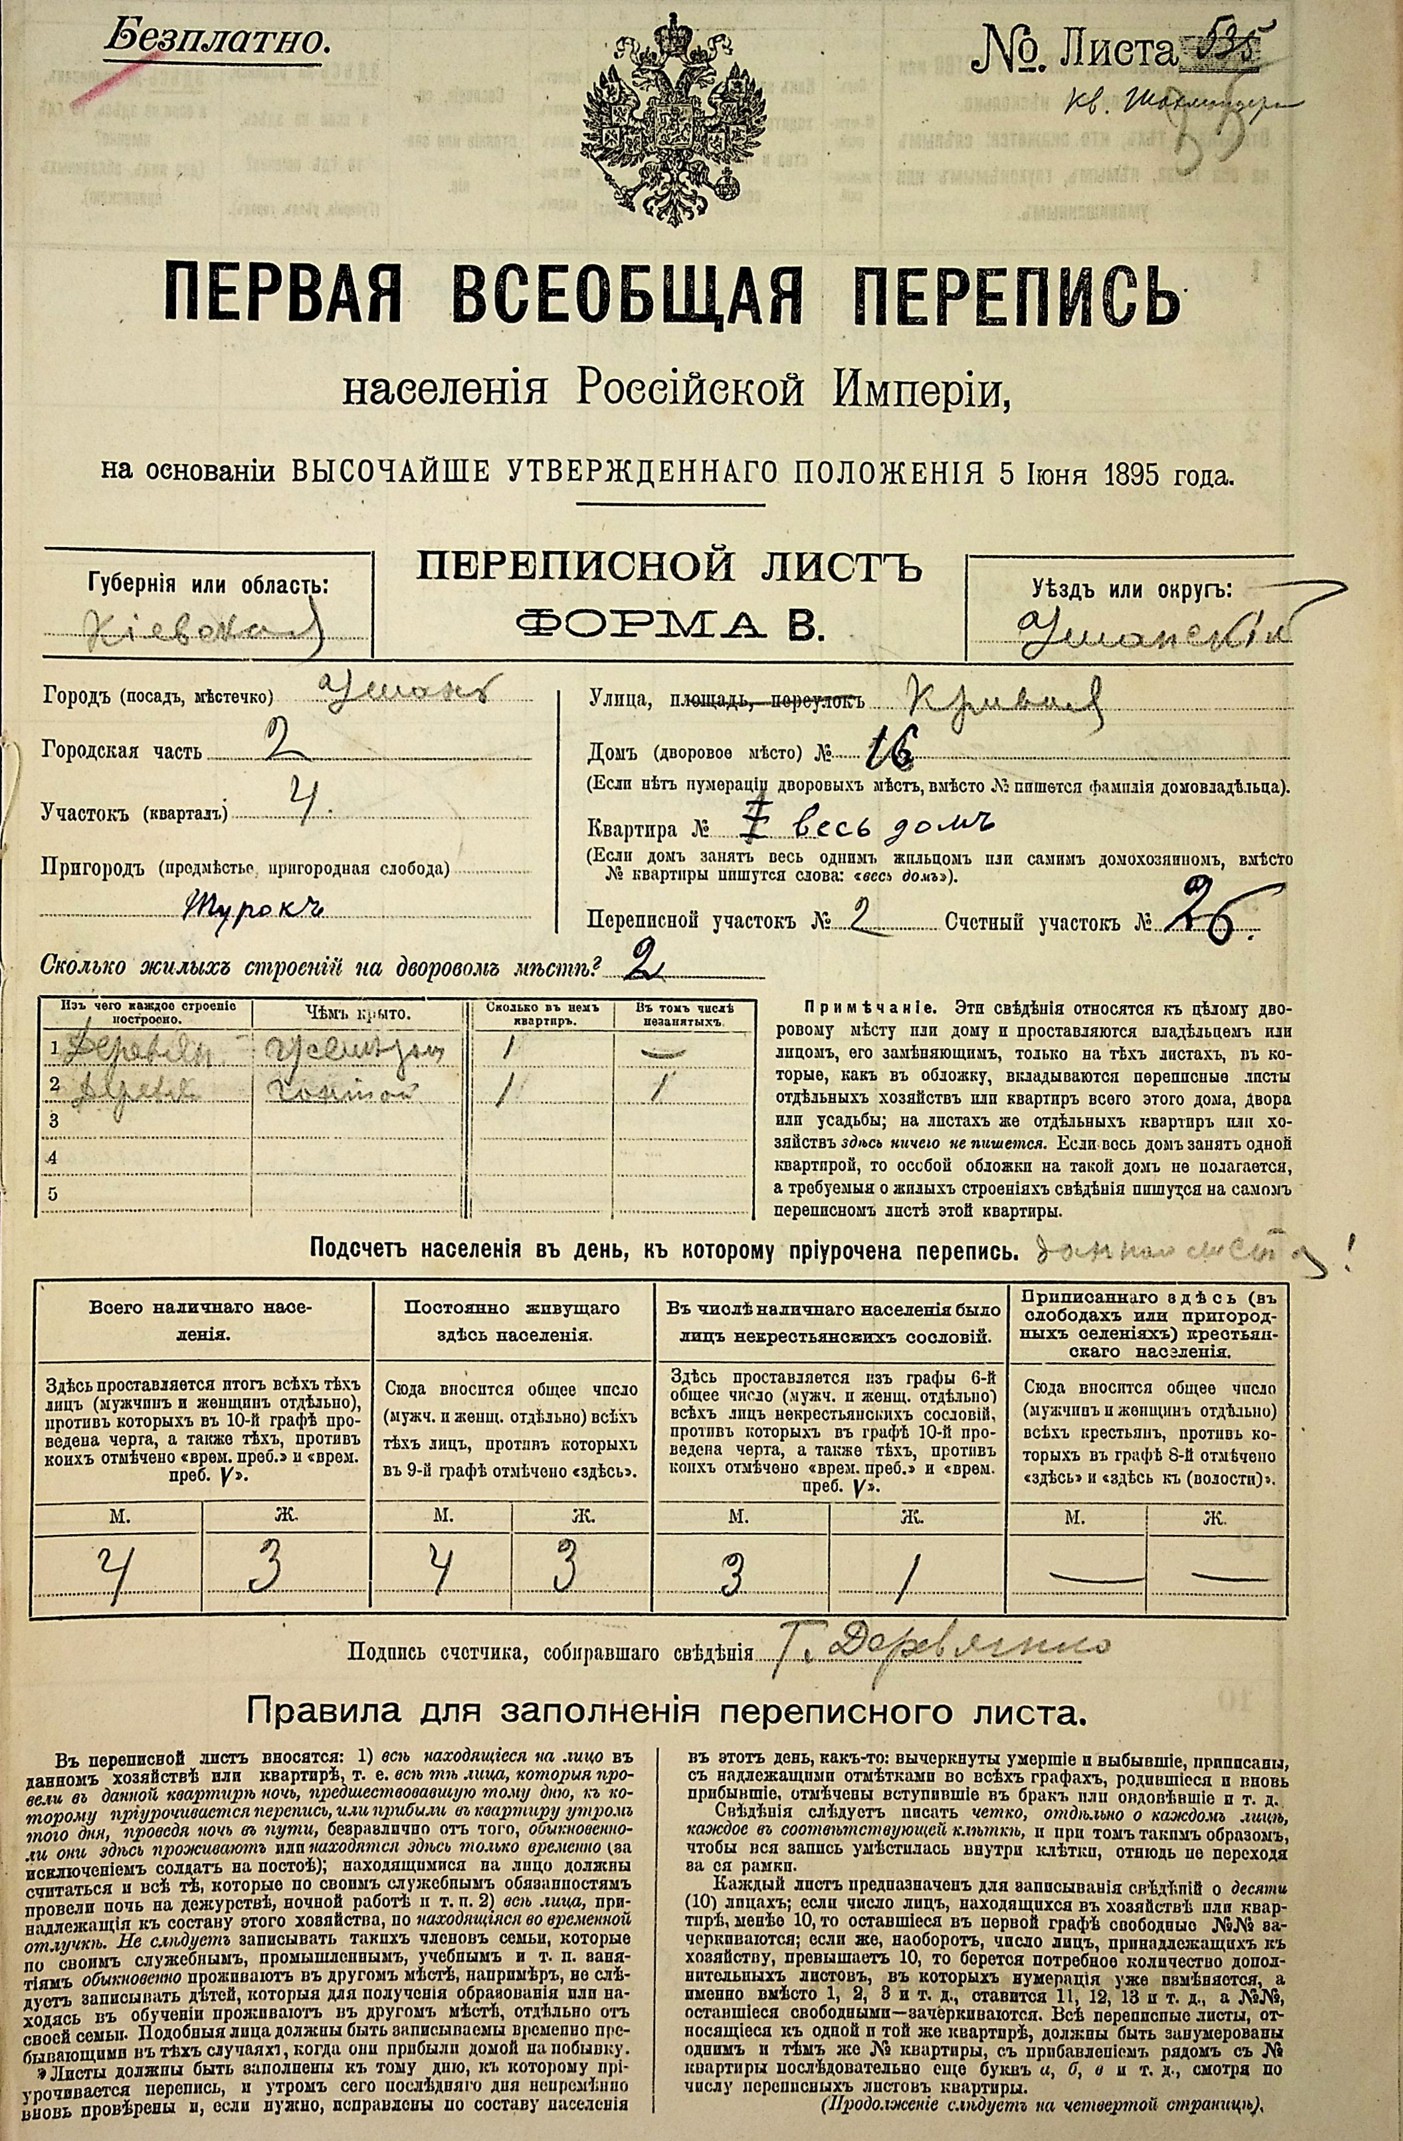 Безплатно.
№. Листа 535
кв.
35
ПЕРВАЯ ВСЕОБЩАЯ ПЕРЕПИСЬ
населенія Россійской Имперіи,
на основаніи ВЫСОЧАЙШЕ УТВЕРЖДЕННАГО ПОЛОЖЕНІЯ 5 Іюня 1895 года.
ПЕРЕПИСНОЙ ЛИСТЪ
ФОРМА В.
Губернія или область:
Кіевская
Уѣздъ или округъ:
Уманскій
Городъ (посадъ, мѣстечко) Умань
Городская часть 2
Участокъ (кварталъ) 4.
Пригородъ (предмѣстье, пригородная слобода)
Турокъ
Улица, площадь, переулокъ Кривая
Домъ (дворовое мѣсто) № 16
(Если нѣтъ нумераціи дворовыхъ мѣстъ, вмѣсто № пишется фамилія домовладѣльца).
Квартира № I весь домъ
(Если домъ занятъ весь однимъ жильцомъ или самимъ домохозяиномъ, вмѣсто
№ квартиры пишутся слова: «весь домъ»).
Переписной участокъ № 2 Счетный участокъ № 26.
Сколько жилыхъ строеній на дворовомъ мѣстѣ? 2
Изъ чего каждое строеніе построено. Чѣмъ крыто. Сколько въ немъ квартиръ. Въ томъ числѣ незанятыхъ.
1 Деревян 1 —
2 Дерев гонтой 1 1
3
4
5
Примѣчаніе. Эти свѣдѣнія относятся къ цѣлому дво-
ровому мѣсту или дому и проставляются владѣльцемъ или
лицомъ, его замѣняющимъ, только на тѣхъ листахъ, въ ко-
торые, какъ въ обложку, вкладываются переписные листы
отдѣльныхъ хозяйствъ или квартиръ всего этого дома, двора
или усадьбы; на листахъ же отдѣльныхъ квартиръ или хо-
зяйствъ здѣсь ничего не пишется. Если весь домъ занятъ одной
квартирой, то особой обложки на такой домъ не полагается,
а требуемыя о жилыхъ строеніяхъ свѣдѣнія пишутся на самомъ
переписномъ листѣ этой квартиры.
Подсчетъ населенія въ день, къ которому пріурочена перепись. данной листа!
Всего наличнаго насе-
ленія.
Здѣсь проставляется итогъ всѣхъ тѣхъ
лицъ (мужчинъ и женщинъ отдѣльно),
противъ которыхъ въ 10-й графѣ про-
ведена черта, а также тѣхъ, противъ
коихъ отмѣчено «врем. преб.» и «врем.
преб. V».
Постоянно живущаго
здѣсь населенія.
Сюда вносится общее число
(мужч. и женщ. отдѣльно) всѣхъ
тѣхъ лицъ, противъ которыхъ
въ 9-й графѣ отмѣчено «здѣсь».
Въ числѣ наличнаго населенія было
лицъ некрестьянскихъ сословій.
Здѣсь проставляется изъ графы 6-й
общее число (мужч. и женщ. отдѣльно)
всѣхъ лицъ некрестьянскихъ сословій,
противъ которыхъ въ графѣ 10-й про-
ведена черта, а также тѣхъ, противъ
коихъ отмѣчено «врем. преб.» и «врем.
преб. V».
Приписаннаго здѣсь (въ
слободахъ или пригород-
ныхъ селеніяхъ) крестьян-
скаго населенія.
Сюда вносится общее число
(мужчинъ и женщинъ отдѣльно)
всѣхъ крестьянъ, противъ ко-
торыхъ въ графѣ 8-й отмѣчено
«здѣсь» и «здѣсь къ (волости)».
М. Ж. М. Ж. М. Ж. М. Ж.
4 3 4 3 3 1 — —
Подпись счетчика, собиравшаго свѣдѣнія Г. Деревянко
Правила для заполненія переписного листа.
Въ переписной листъ вносятся: 1) всѣ находящіеся на лицо въ
данномъ хозяйствѣ или квартирѣ, т. е. всѣ тѣ лица, которыя про-
вели въ данной квартирѣ ночь, предшествовавшую тому дню, къ ко-
торому пріурочивается перепись, или прибыли въ квартиру утромъ
того дня, проведя ночь въ пути, безразлично отъ того, обыкновенно-
ли они здѣсь проживаютъ или находятся здѣсь только временно (за
исключеніемъ солдатъ на постоѣ); находящимися на лицо должны
считаться и всѣ тѣ, которые по своимъ служебнымъ обязанностямъ
провели ночь на дежурствѣ, ночной работѣ и т. п. 2) всѣ лица, при-
надлежащія къ составу этого хозяйства, но находящіяся во временной
отлучкѣ. Не слѣдуетъ записывать такихъ членовъ семьи, которые
по своимъ служебнымъ, промышленнымъ, учебнымъ и т. п. заня-
тіямъ обыкновенно проживаютъ въ другомъ мѣстѣ, напримѣръ, не слѣ-
дуетъ записывать дѣтей, которыя для полученія образованія или на-
ходясь въ обученіи проживаютъ въ другомъ мѣстѣ, отдѣльно отъ
своей семьи. Подобныя лица должны быть записываемы временно пре-
бывающими въ тѣхъ случаяхъ, когда они прибыли домой на побывку.
Листы должны быть заполнены къ тому дню, къ которому прі-
урочивается перепись, и утромъ сего послѣдняго дня непремѣнно
вновь провѣрены и, если нужно, исправлены по составу населенія
въ этотъ день, какъ-то: вычеркнуты умершіе и выбывшіе, приписаны,
съ надлежащими отмѣтками во всѣхъ графахъ, родившіеся и вновь
прибывшіе, отмѣчены вступившіе въ бракъ или овдовѣвшіе и т. д.
Свѣдѣнія слѣдуетъ писать четко, отдѣльно о каждомъ лицѣ,
каждое въ соотвѣтствующей клѣткѣ, и при томъ такимъ образомъ,
чтобы вся запись умѣстилась внутри клѣтки, отнюдь не переходя
за ея рамки.
Каждый листъ предназначенъ для записыванія свѣдѣній о десяти
(10) лицахъ; если число лицъ, находящихся въ хозяйствѣ или квар-
тирѣ, менѣе 10, то оставшіеся въ первой графѣ свободные №№ за-
черкиваются; если же, наоборотъ, число лицъ, принадлежащихъ къ
хозяйству, превышаетъ 10, то берется потребное количество допол-
нительныхъ листовъ, въ которыхъ нумерація уже измѣняется, а
именно вмѣсто 1, 2, 3 и т. д., ставится 11, 12, 13 и т. д., а №№,
оставшіеся свободными—зачеркиваются. Всѣ переписные листы, от-
носящіеся къ одной и той же квартирѣ, должны быть занумерованы
однимъ и тѣмъ же № квартиры, съ прибавленіемъ рядомъ съ №
квартиры послѣдовательно еще буквъ а, б, в и т. д., смотря по
числу переписныхъ листовъ квартиры.
(Продолженіе слѣдуетъ на четвертой страницѣ).